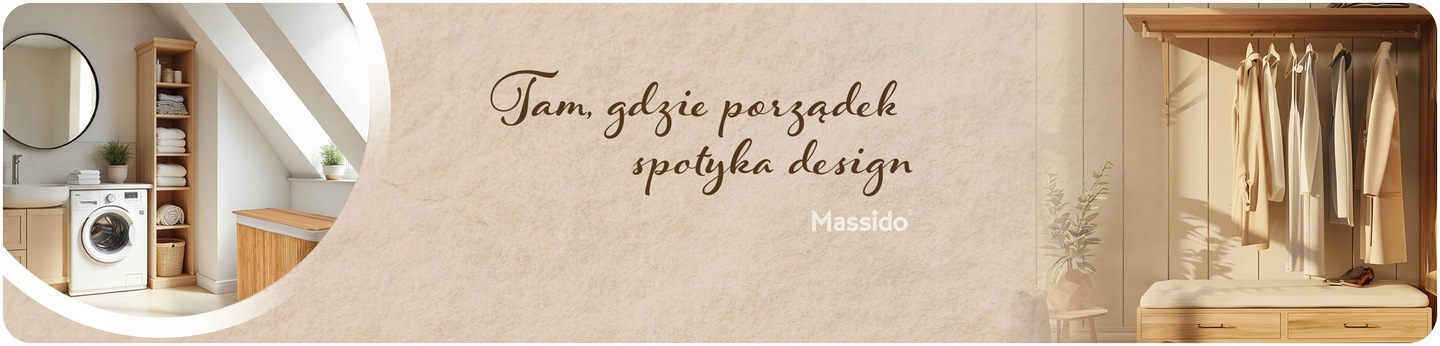 Tam, gdzie porządek
spotyka design
Massido